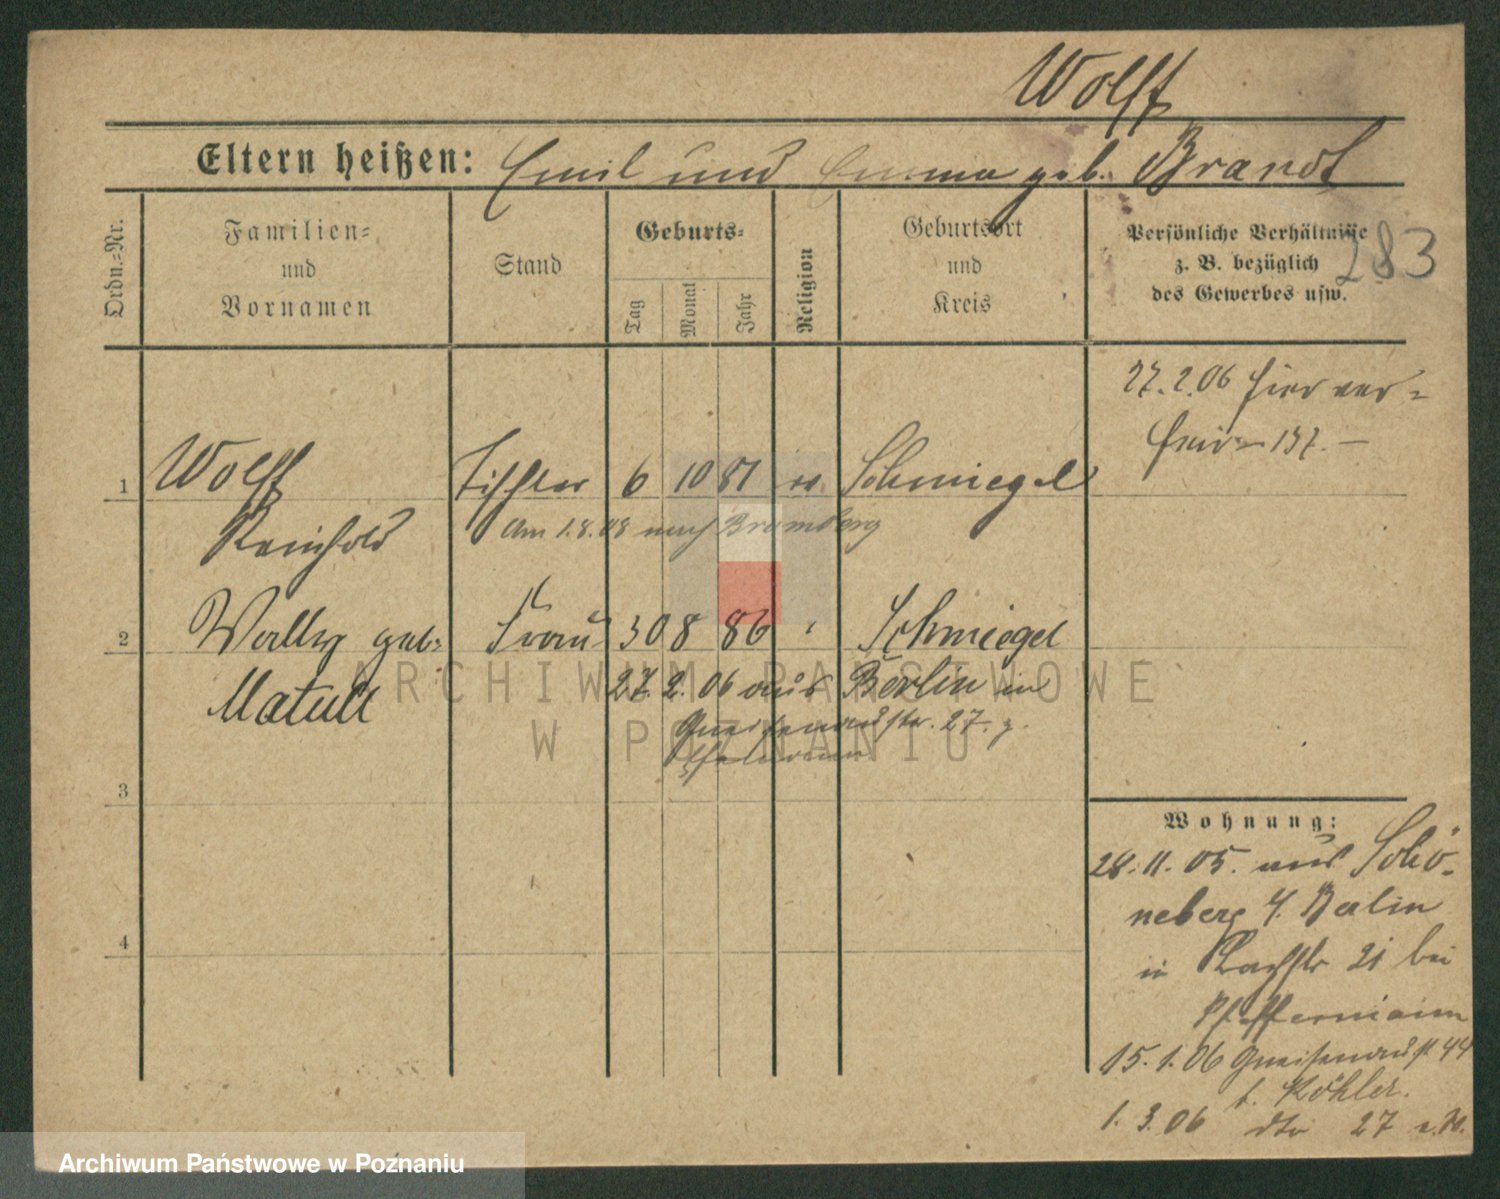 Wolff
Eltern heißen: Emil und Emma geb. Brandt
Ordn.-Nr.
Familien-
und
Vornamen
Stand
Geburts-
Tag
Monat
Jahr
Religion
Geburtsort
und
Kreis
Persönliche Verhältnisse
z. B. bezüglich
des Gewerbes usw.
283
27.2.06 hier ver-
1 Wolff Tischler 6 10 81 ev. Schmiegel
Reinhold
Am 1.8.08 nach Bromberg
2 Wally geb. Frau 30 8 86 " Schmiegel
Matull
27. 2. 06 aus Berlin in
Gneisenaustr. 27.
3
4
Wohnung:
28.11.05. aus Schö-
neberg b. Berlin
in 21 bei
15.1.06 Gneisenaustr 44
b. Köhler.
1. 3. 06 dto 27
ARCHIWUM PAŃSTWOWE
W POZNANIU
Archiwum Państwowe w Poznaniu